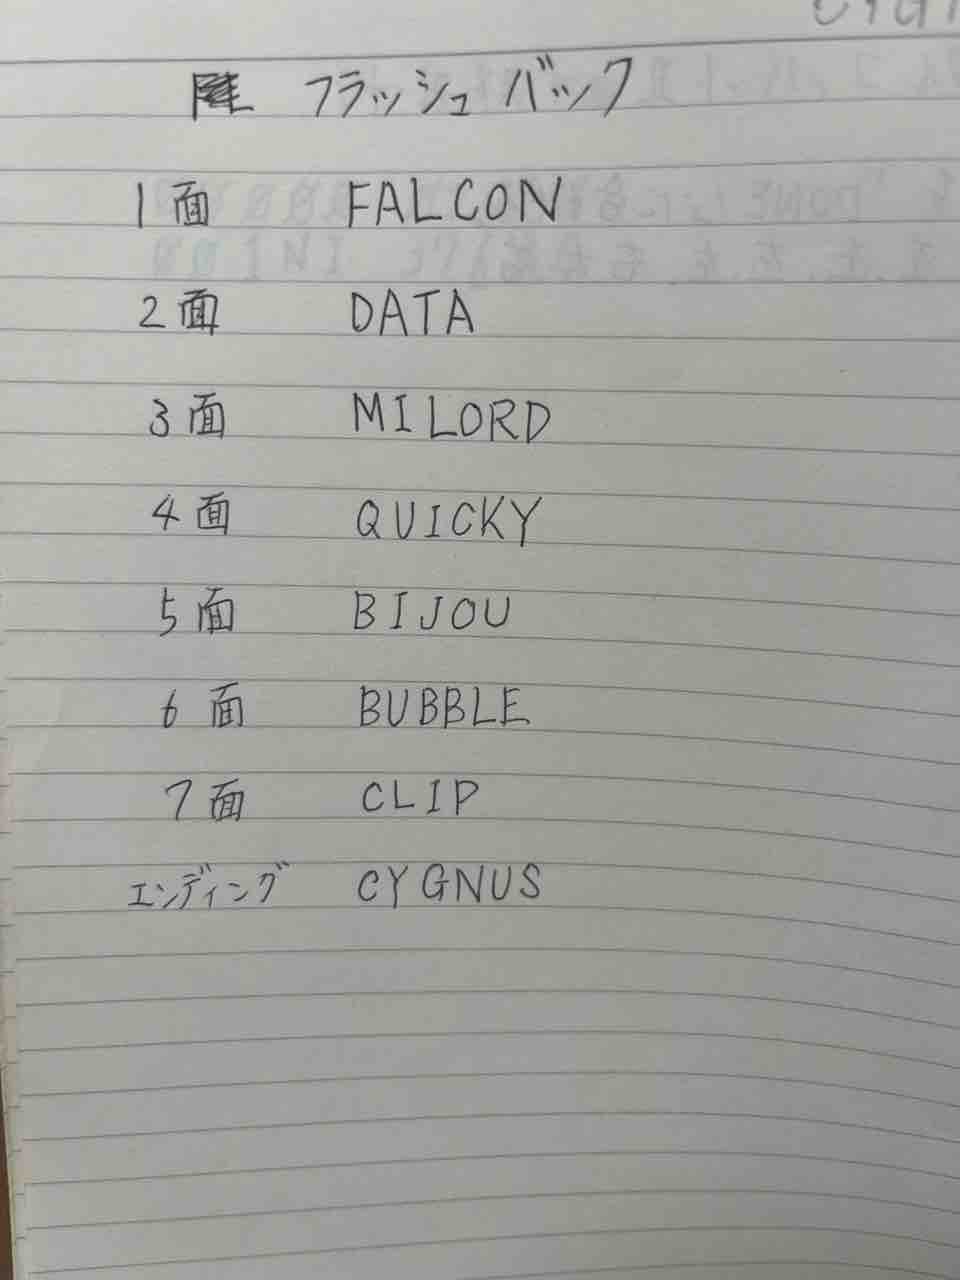 フラッシュバック
1面 FALCON
2面 DATA
3面 MILORD
4面 QUICKY
5面 BIJOU
6面 BUBBLE
7面 CLIP
エンディング CYGNUS